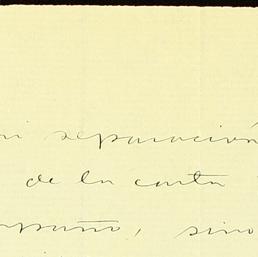 mi separación
de la carta
mpaño, sino